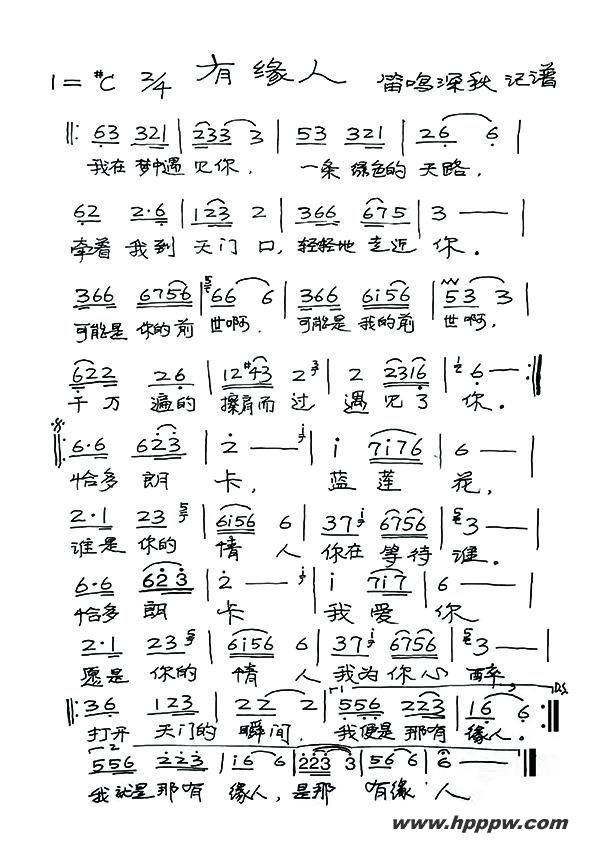 1=#C 2/4 有缘人 笛鸣深秋 记谱
‖: 63 321 | 233 3 | 53 321 | 26 6 |
我在 梦中遇 见你, 一条 绿色的 天路,
62 2·6 | 123 2 | 366 675 | 3 — |
牵着 我到 天门 口, 轻轻地 走近 你.
366 6756 | 66 6 | 366 6i56 | 53 3 |
可能是 你的前 世啊, 可能是 我的前 世啊,
622 26 | 12#43 2 | 2 2316 | 6 — :‖
千万 遍的 擦肩而 过 遇见了 你.
‖: 6·6 623 | 2 — | i 7i76 | 6 — |
恰多 朗 卡, 蓝 莲 花,
2·1 23 | 6i56 6 | 37 6756 | 3 — |
谁是 你的 情 人 你在 等待 谁.
6·6 623 | 2 — | i 7i7 | 6 — |
恰多 朗 卡 我 爱 你
2·1 23 | 6i56 6 | 37 6756 | 3 — |
愿是 你的 情 人 我为 你心 醉
1. D.S.
‖: 36 123 | 22 2 | 556 223 | 16 6 :‖
打开 天门的 瞬间, 我便是 那有 缘人.
2.
556 223 | i6 6 | 223 3 | 56 6 | 6 — ‖
我就是 那有 缘人, 是那 有缘 人
www.hpppw.com